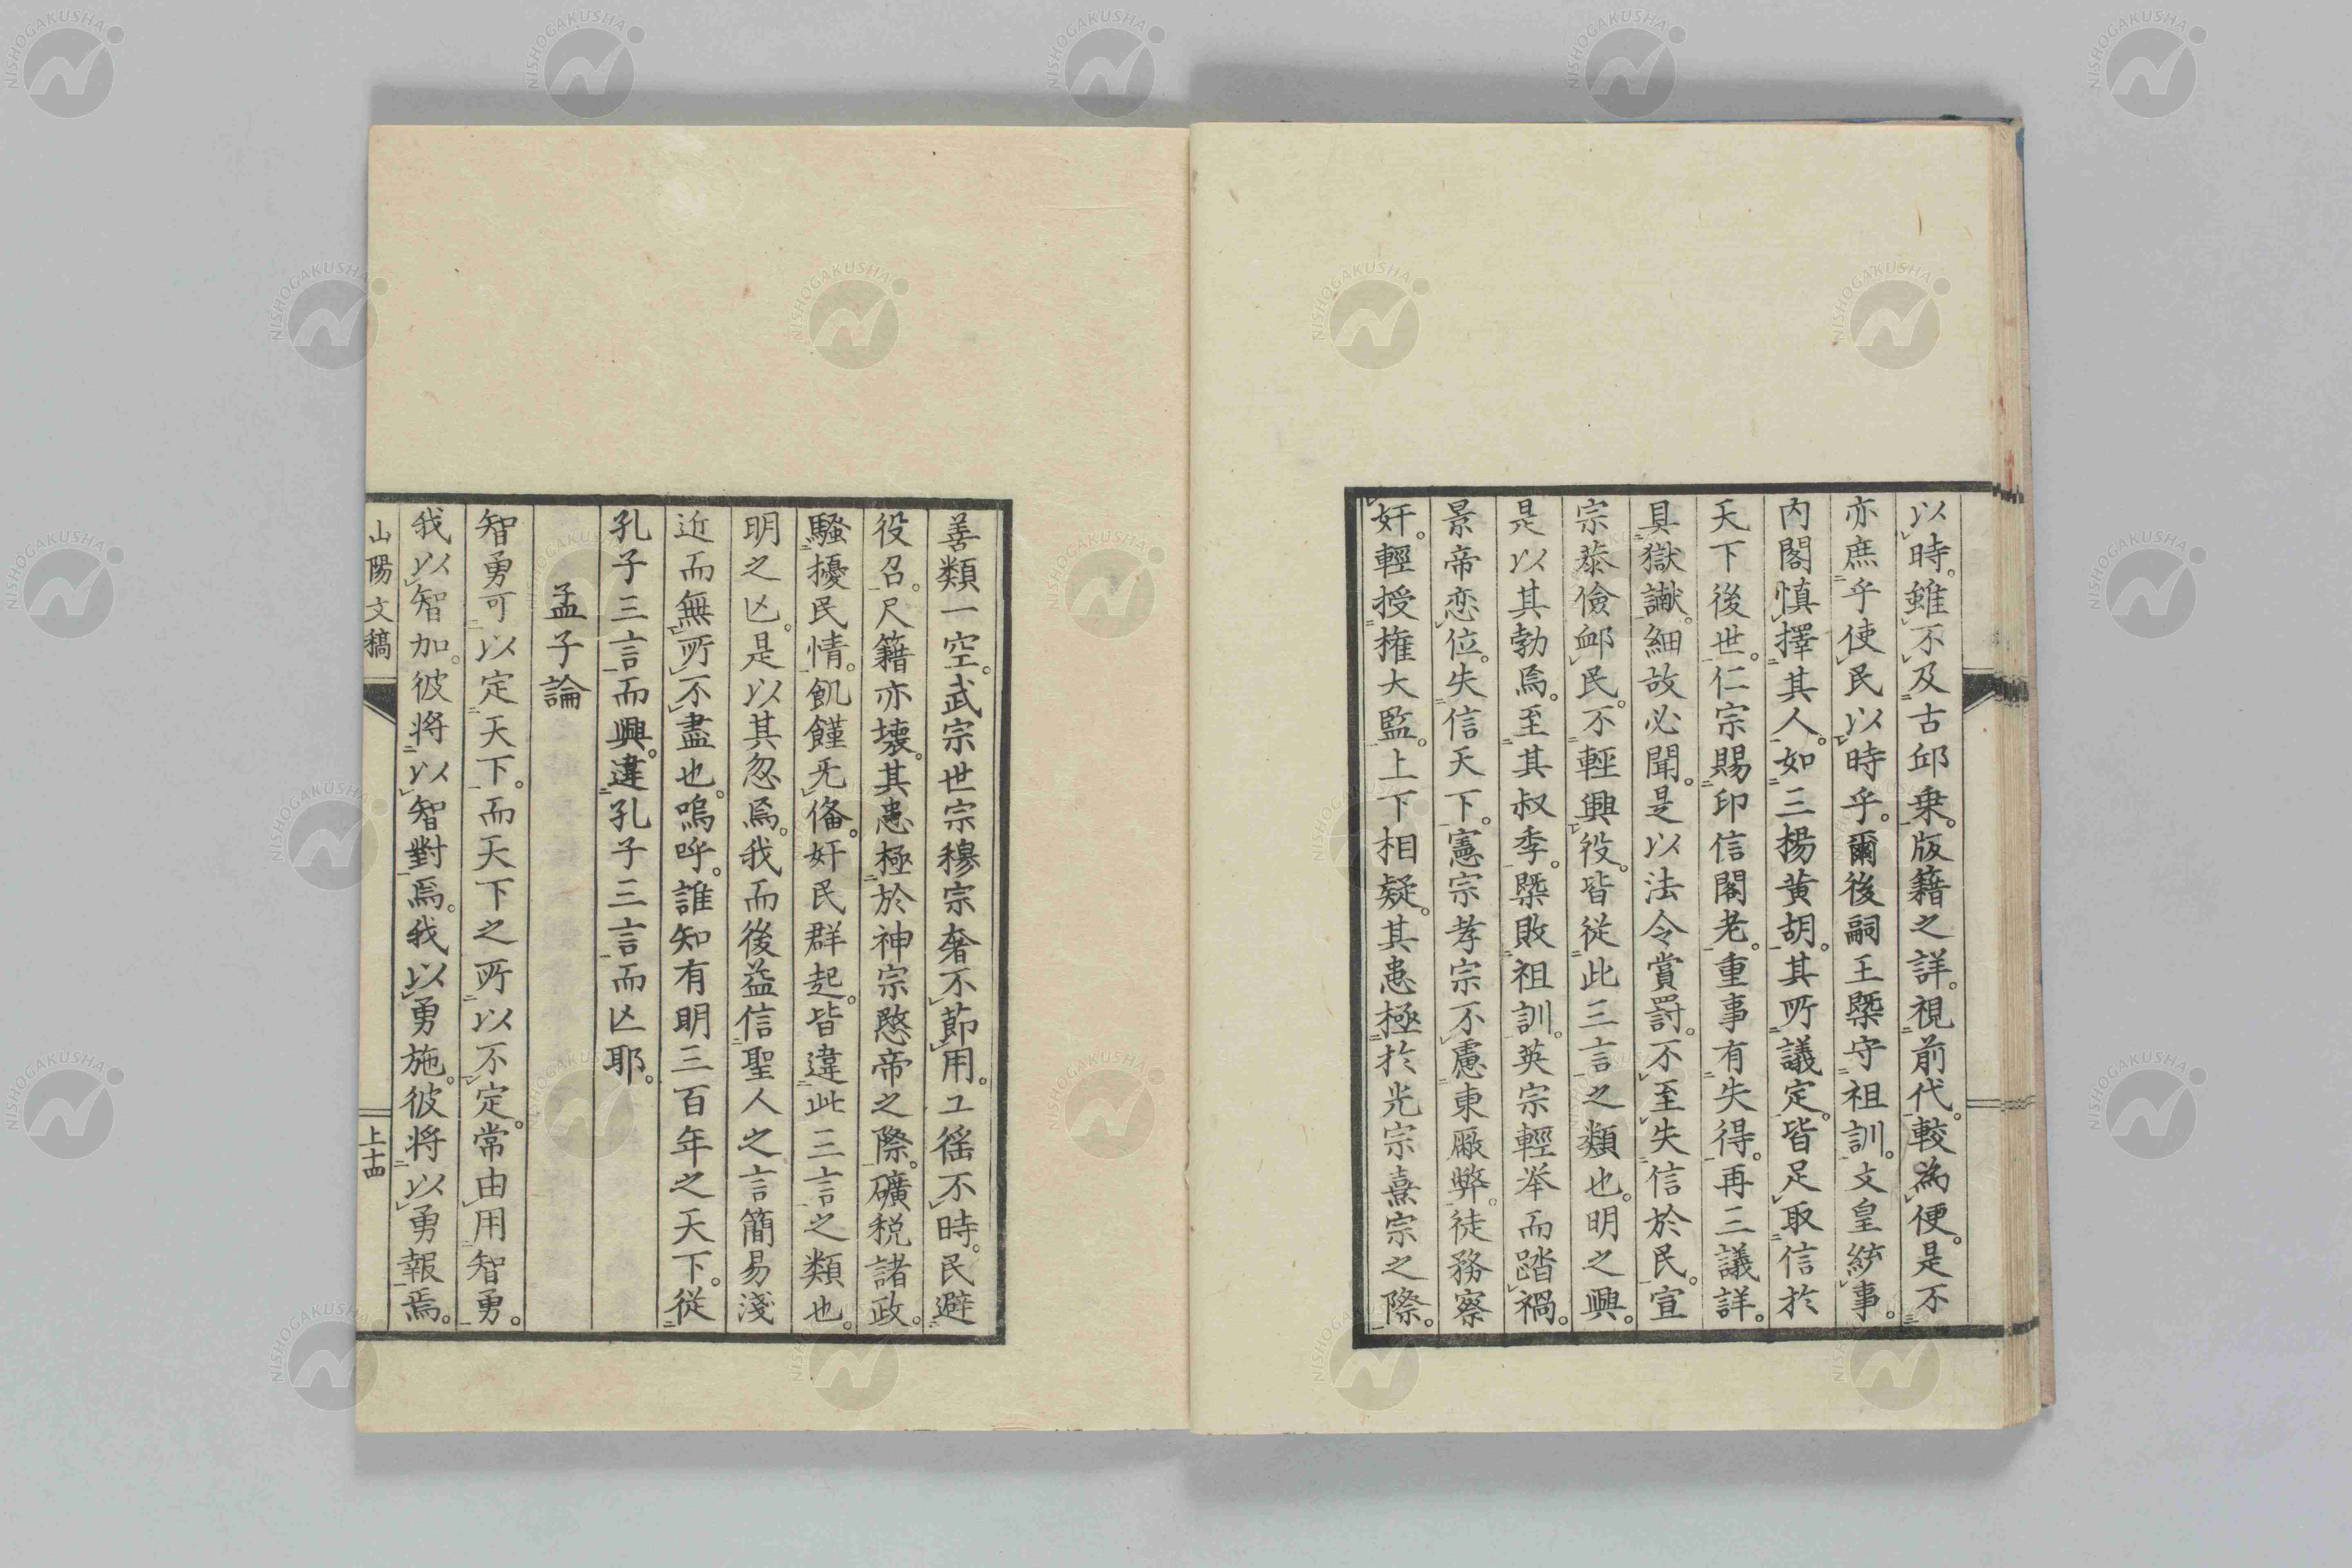 以時。雖不及古邱乗。版籍之詳。視前代。較為便。是不
亦庶乎使民以時乎。爾後嗣王槩守祖訓。文皇統事。
内閣慎擇其人。如三楊黄胡。其所議定。皆足取信於
天下後世。仁宗賜印信閣老。重事有失得。再三議詳。
具獄讞。細故必聞。是以法令賞罰。不至失信於民。宣
宗恭儉邮民。不輕興役。皆従此三言之類也。明之興。
是以其勃焉。至其叔季。槩敗祖訓。英宗輕举而踏禍。
景帝恋位。失信天下。憲宗孝宗不慮東厰弊。徒務察
奸。輕授権大監。上下相疑。其患極於光宗熹宗之際。
善類一空。武宗世宗穆宗奢不節用。工徭不時。民避
役召。尺籍亦壊。其患極於神宗愍帝之際。礦税諸政。
騒擾民情。飢饉无俻。奸民群起。皆違此三言之類也。
明之亾。是以其忽焉。我而後益信聖人之言簡易淺
近而無所不盡也。嗚呼。誰知有明三百年之天下。従
孔子三言而興。違孔子三言而亾耶。
孟子論
智勇可以定天下。而天下之所以不定。常由用智勇。
我以智加。彼将以智對焉。我以勇施。彼将以勇報焉。
山陽文稿
上十四
NISHOGAKUSHA